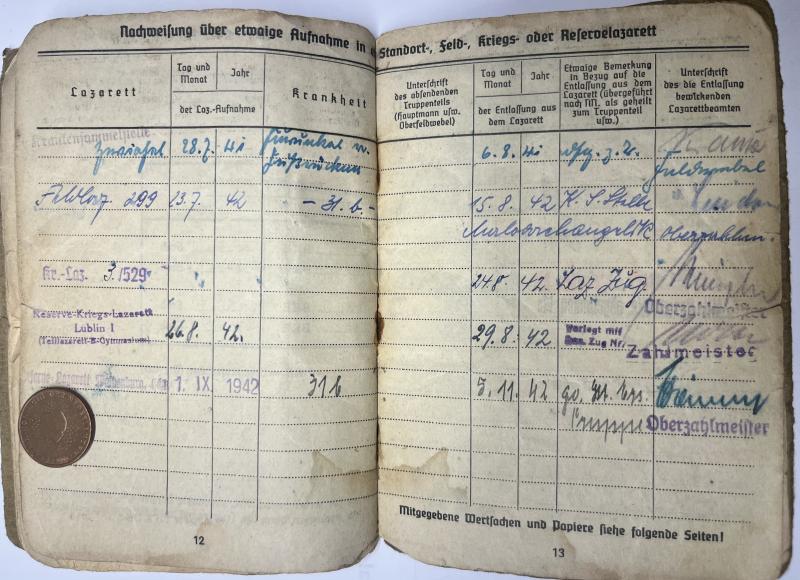 Nachweisung über etwaige Aufnahme in Standort-, Feld-, Kriegs- oder Reservelazarett
Lazarett
Tag und Monat
Jahr
der Laz.-Aufnahme
Krankheit
Unterschrift
des absendenden
Truppenteils
(Hauptmann usw.
Oberfeldwebel)
Tag und Monat
Jahr
der Entlassung aus
dem Lazarett
Etwaige Bemerkung
in Bezug auf die
Entlassung aus dem
Lazarett (übergeführt
nach NN, als geheilt
zum Truppenteil
usw.)
Unterschrift
des die Entlassung
bewirkenden
Lazarettbeamten
Krankensammelstelle
28.7. 41 Furunkel
6.8. 41
Feldlaz 299 13.7. 42 - 31.b.-
15.8. 42 K.S.Stelle
Nowoarchangelsk Oberzahlm.
Kr.-Laz. 3/529 " "
24.8. 42. Laz Zug.
Oberzahlmeister
Reserve-Kriegs-Lazarett
Lublin I
(Teillazarett-B-Gymnasium)
26.8. 42.
29.8. 42 Verlegt mit
Zug Nr.
Zahlmeister
1. IX. 1942 31b
3.11. 42
Truppe Oberzahlmeister
Mitgegebene Wertsachen und Papiere siehe folgende Seiten!
12
13